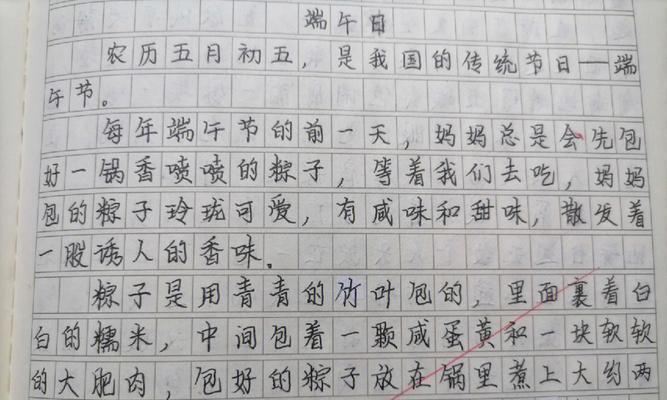 端午日
农历五月初五，是我国的传统节日——端
午节。
每年端午节的前一天，妈妈总是会先包
好一锅香喷喷的粽子，等着我们去吃，妈妈
包的粽子玲珑可爱，有咸味和甜味，散发着
一股诱人的香味．
粽子是用青青的竹叶包的，里面裹着白
白的糯米，中间包着一颗咸蛋黄和一块软软
的大肥肉，包好的粽子放在锅里煮上大约两